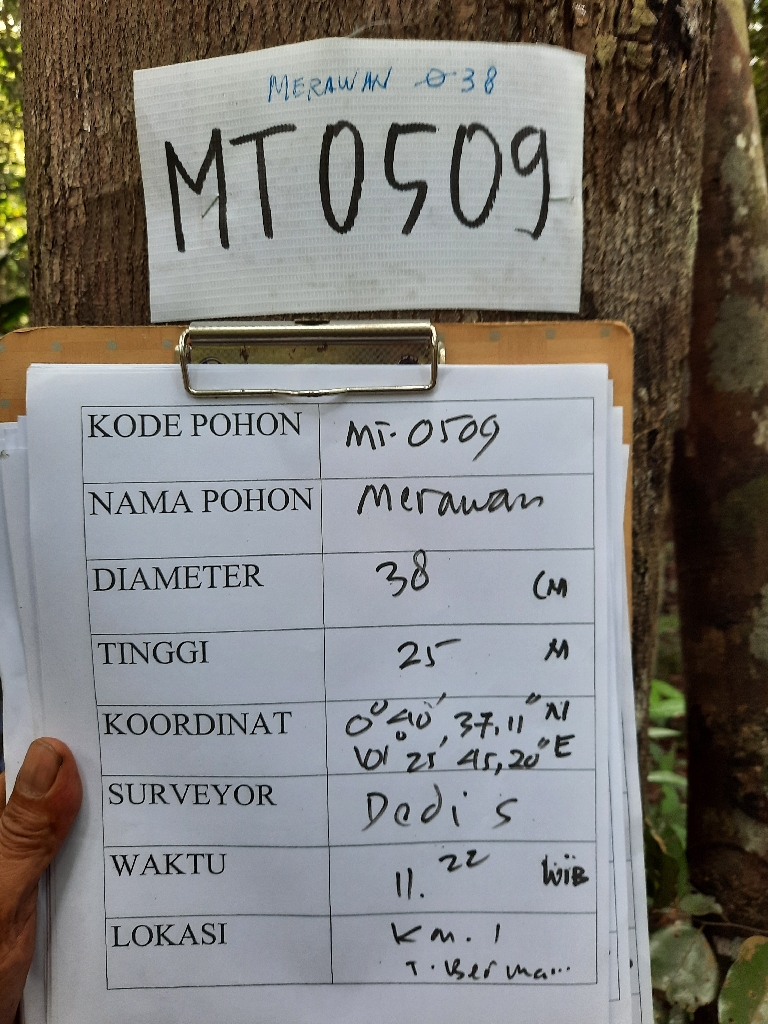 MERAWAN Ø 38
MT0509
KODE POHON MT-0509
NAMA POHON Merawan
DIAMETER 38 CM
TINGGI 25 M
KOORDINAT 0° 40' 37,11" N
101° 25' 45,20" E
SURVEYOR Dedi S
WAKTU 11.22 WIB
LOKASI Km. 1